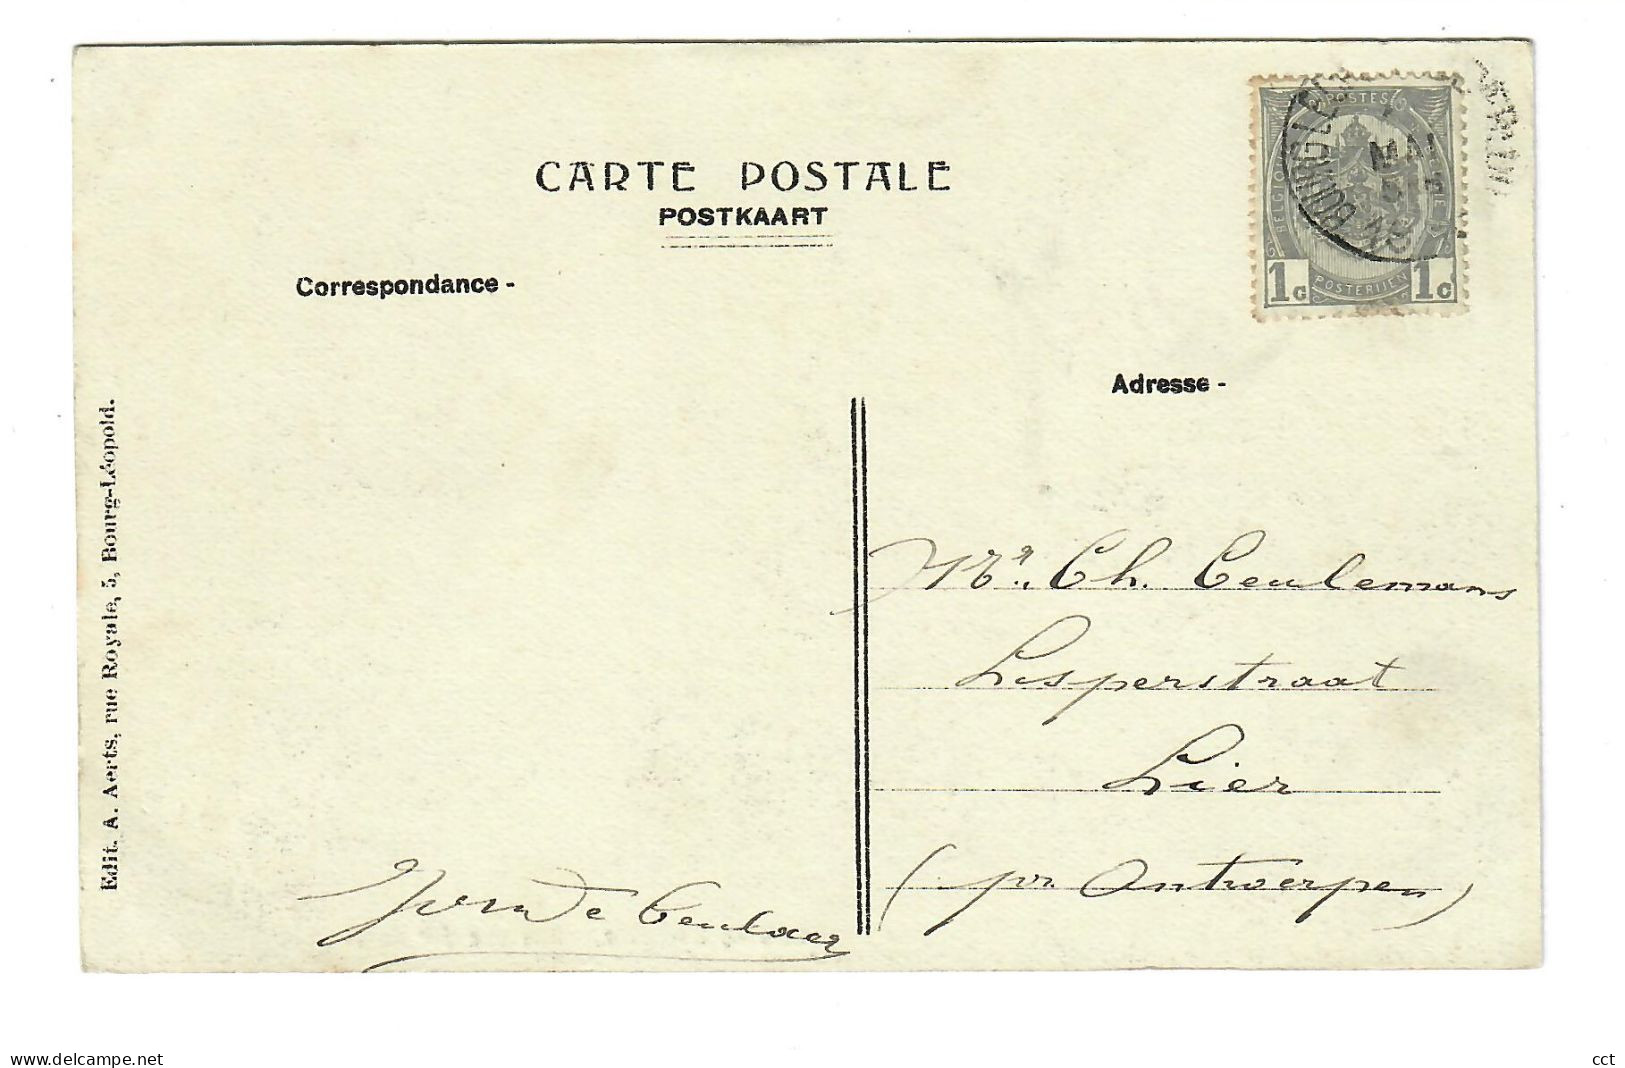 CARTE POSTALE
POSTKAART
Correspondance -
Adresse -
POSTES
BELGIQUE
POSTERIJEN
1c 1c
Edit. A. Aerts, rue Royale, 5, Bourg-Léopold.
Mr. Ch. Ceulemans
Lisperstraat
Lier
(pr. Antwerpen)
De Ceulaer
www.delcampe.net
cct